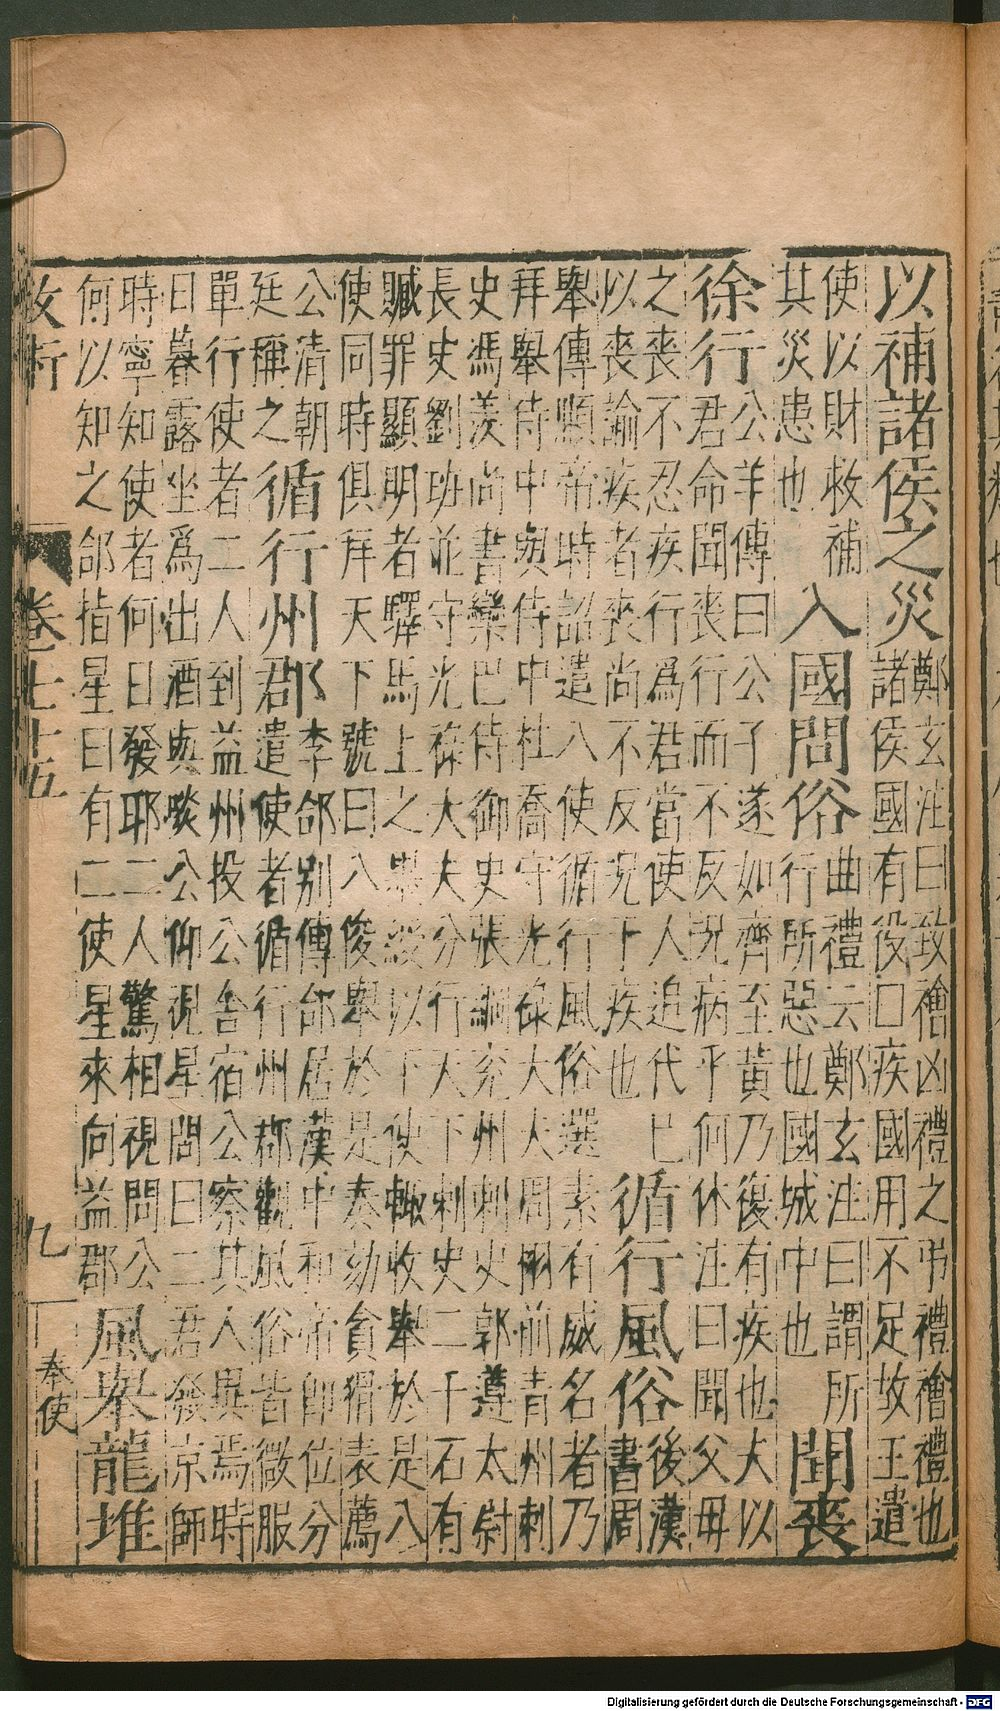 以補諸侯之災
鄭玄注曰致禬凶禮之弔禮禬禮也
諸侯國有役口疾國用不足故王遣
使以財救補
其災患也
入國問俗
曲禮云鄭玄注曰謂所
行所惡也國城中也
聞喪
徐行
公羊傳曰公子遂如齊至黃乃復有疾也大以
君命聞喪行而不反況病乎何休注曰聞父母
之喪不忍疾行爲君當使人追代已
以喪諭疾者喪尚不反況下疾也
循行風俗
後漢
書周
舉傳順帝時詔遣八使循行風俗選素有威名者乃
拜舉侍中與侍中杜喬守光祿大夫周栩前青州刺
史馮羨尚書欒巴侍御史張綱兗州刺史郭遵太尉
長史劉班並守光祿大夫分行天下刺史二千石有
贓罪顯明者驛馬上之墨綬以下使輙收舉於是八
使同時俱拜天下號曰八俊舉於是奏劾貪猾表薦
公清朝
廷稱之
循行州郡
李郃別傳郃居漢中和帝即位分
遣使者循行州郡觀風俗皆微服
單行使者二人到益州投公舍宿公察其人異焉時
日暮露坐爲出酒與啖公仰視星問曰二君發京師
時寧知使者何日發耶二人驚相視問公
何以知之郃指星曰有二使星來向益郡
風舉龍堆
卷七十五
九
奉使
Digitalisierung gefördert durch die Deutsche Forschungsgemeinschaft - DFG